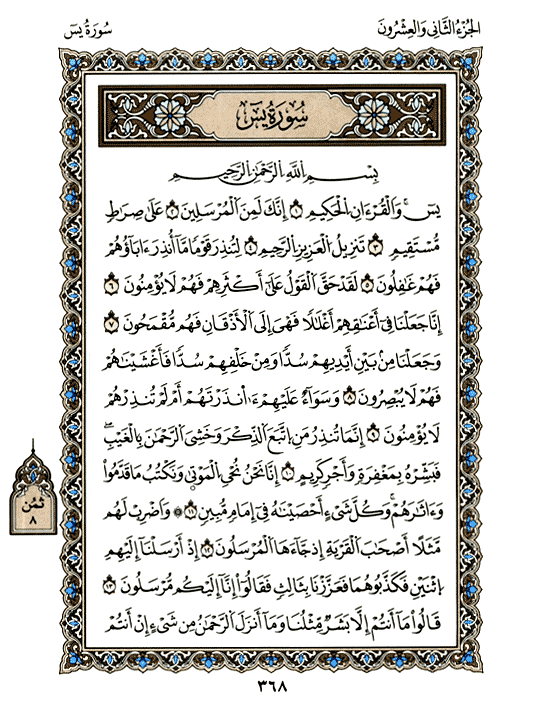 الجُزْءُ الثَّانِي وَالْعِشْرُونَ
سُورَةُ يسٓ
سُورَةُ يسٓ
بِسْمِ اللَّهِ الرَّحْمَٰنِ الرَّحِيمِ
يسٓ وَالْقُرْءَانِ الْحَكِيمِ ١ إِنَّكَ لَمِنَ الْمُرْسَلِينَ ٢ عَلَىٰ صِرَاطٍ
مُّسْتَقِيمٍ ٣ تَنزِيلُ الْعَزِيزِ الرَّحِيمِ ٤ لِتُنذِرَ قَوْمًا مَّا أُنذِرَ ءَابَاؤُهُمْ
فَهُمْ غَٰفِلُونَ ٥ لَقَدْ حَقَّ الْقَوْلُ عَلَىٰ أَكْثَرِهِمْ فَهُمْ لَا يُؤْمِنُونَ ٦
إِنَّا جَعَلْنَا فِي أَعْنَٰقِهِمْ أَغْلَٰلًا فَهْيَ إِلَى الْأَذْقَانِ فَهُم مُّقْمَحُونَ ٧
وَجَعَلْنَا مِنْ بَيْنِ أَيْدِيهِمْ سُدًّا وَمِنْ خَلْفِهِمْ سُدًّا فَأَغْشَيْنَٰهُمْ
فَهُمْ لَا يُبْصِرُونَ ٨ وَسَوَآءٌ عَلَيْهِمْ ءَا۬نذَرْتَهُمْ أَمْ لَمْ تُنذِرْهُمْ
لَا يُؤْمِنُونَ ٩ إِنَّمَا تُنذِرُ مَنِ اتَّبَعَ الذِّكْرَ وَخَشِيَ الرَّحْمَٰنَ بِالْغَيْبِ
فَبَشِّرْهُ بِمَغْفِرَةٍ وَأَجْرٍ كَرِيمٍ ١٠ إِنَّا نَحْنُ نُحْيِ الْمَوْتَىٰ وَنَكْتُبُ مَا قَدَّمُوا
وَءَاثَٰرَهُمْ وَكُلَّ شَيْءٍ أَحْصَيْنَٰهُ فِي إِمَامٍ مُّبِينٍ ١١ وَاضْرِبْ لَهُم
مَّثَلًا أَصْحَٰبَ الْقَرْيَةِ إِذْ جَآءَهَا الْمُرْسَلُونَ ١٢ إِذْ أَرْسَلْنَا إِلَيْهِمُ
اثْنَيْنِ فَكَذَّبُوهُمَا فَعَزَّزْنَا بِثَالِثٍ فَقَالُوا إِنَّا إِلَيْكُم مُّرْسَلُونَ ١٣
قَالُوا مَا أَنتُمْ إِلَّا بَشَرٌ مِّثْلُنَا وَمَا أَنزَلَ الرَّحْمَٰنُ مِن شَيْءٍ إِنْ أَنتُمْ
ثُمُن
٨
٣٦٨